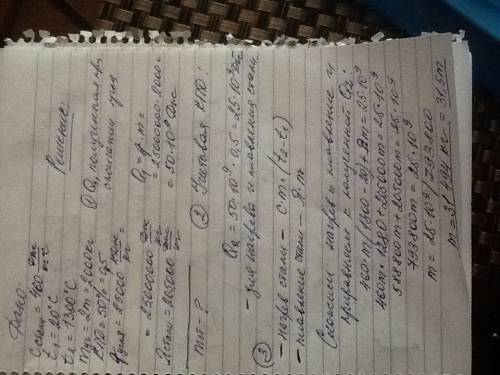 Дано:
Cстали = 460 Дж/кг
t₁ = 20°C
t₂ = 1300°C
m = 2т = 2000кг
КПД = 50% = 0,5
qугля = 25000 кДж/кг
= 25000000 Дж/кг
λстали = 205000 Дж/кг
mст - ?
Решение
① Q₁, полученная при сжигании угля
Q₁ = q·m =
= 25000000·2000 =
= 50·10⁹ Дж
② Учитывая КПД:
Q₂ = 50·10⁹·0,5 = 25·10⁹ Дж
- для нагрева и плавления стали
③
- нагрев стали – c·m·(t₂-t₁)
- плавление стали – λ·m
Сложим нагрев и плавление и
приравняем к полученной Q₂:
460·m(1300-20)+λm = 25·10⁹
460m·1280+205000m = 25·10⁹
588800m+205000m = 25·10⁹
793800m = 25·10⁹
m = 25·10⁹/793800
m = 31494 кг = 31,5т